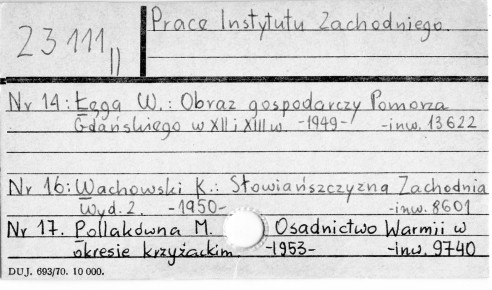 23 111 II
Prace Instytutu Zachodniego.
Nr 14: Łęga W.: Obraz gospodarczy Pomorza
Gdańskiego w XII i XIII w. -1949- -inw. 13622
Nr 16: Wachowski K.: Słowiańszczyzna Zachodnia
Wyd. 2. -1950- -inw. 8601
Nr 17. Pollakówna M. Osadnictwo Warmii w
okresie krzyżackim. -1953- -inw. 9740
DUJ. 693/70. 10 000.